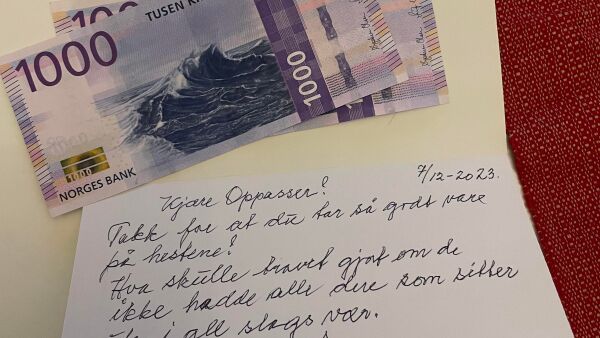 100
TUSEN
1000
1000
1000
NORGES BANK
7/12-2023.
Kjære Oppasser!
Takk for at du tar så godt vare
på hestene!
Hva skulle travet gjort om de
ikke hadde alle dere som sitter
i all slags vær.